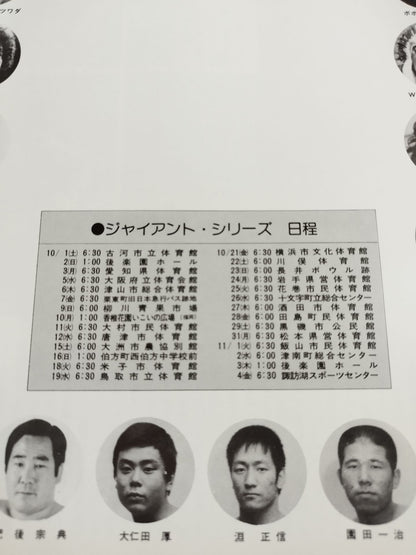 ツワダ
ボボ
W
●ジャイアント・シリーズ 日程
10／1(土) 6:30 古河市立体育館
2(日) 1:00 後楽園ホール
3(月) 6:30 愛知県体育館
5(水) 6:30 大阪府立体育会館
6(木) 6:30 津山市総合体育館
7(金) 6:30 栗東町旧日本急行バス跡地
9(日) 6:00 柳川青果市場
10(月) 1:00 香椎花園いこいの広場(福岡)
11(火) 6:30 大村市民体育館
12(水) 6:30 唐津市体育館
15(土) 6:00 大洲市農協別館
16(日) 1:00 伯方町西伯方中学校前
18(火) 6:30 米子市体育館
19(水) 6:30 鳥取市立体育館
10／21(金) 6:30 横浜市文化体育館
22(土) 6:00 川俣体育館
23(日) 6:00 長井ボウル跡
24(月) 6:30 岩手県営体育館
25(火) 6:30 花巻市民体育館
26(水) 6:30 十文字町立総合センター
27(木) 6:00 酒田市体育館
28(金) 6:00 田島町民体育館
29(土) 6:30 黒磯市公民館
31(月) 6:30 松本県営体育館
11／1(火) 6:30 飯山市民体育館
2(水) 6:00 津南町総合センター
3(木) 1:00 後楽園ホール
4(金) 6:30 諏訪湖スポーツセンター
肥後宗典
大仁田厚
淵正信
園田一治